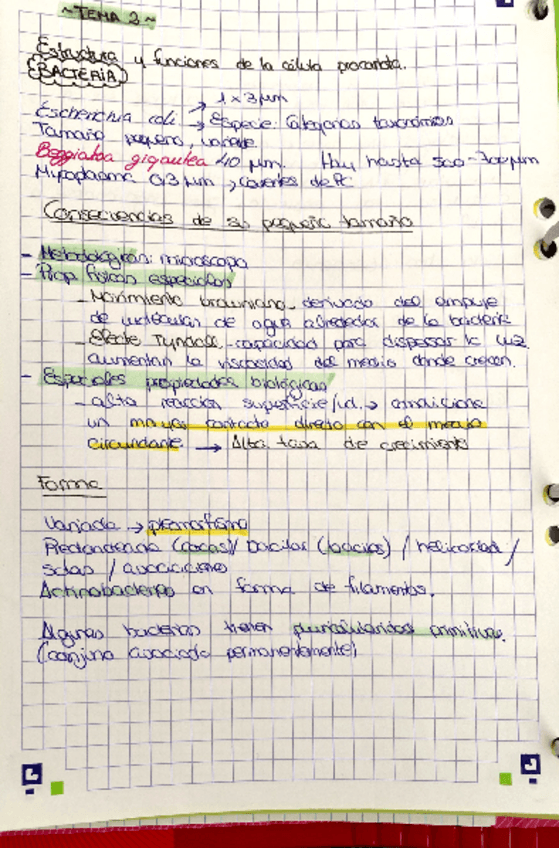 ~TEMA 2~
Estructura y funciones de la célula procariota.
(BACTERIA)
→ 1 x 3 µm
Escherichia coli → Especie: Categorías taxonómicas
Tamaño pequeño, variable
Beggiatoa gigantea 40 µm. Hay hasta 500-700 µm
Mycoplasma 0,3 µm, carentes de PC
Consecuencias de su pequeño tamaño
- Metodológicas: microscopio
- Prop. físicas especiales
- Movimiento browniano - derivado del empuje
de moléculas de agua alrededor de la bacteria
- Efecto Tyndall - capacidad para dispersar la luz
aumentan la viscosidad del medio donde crecen.
- Especiales propiedades biológicas
- alta relación superficie/vol. → condiciona
un mayor contacto directo con el medio
circundante. → Alta tasa de crecimiento
Forma
Variada → pleomorfismo
Redondeada (cocos)/ bacilar (bacilos) / helicoidal /
solas / asociaciones
Actinobacterias en forma de filamentos.
Algunas bacterias tienen pluricelularidad primitiva.
(conjunto asociado permanentemente)